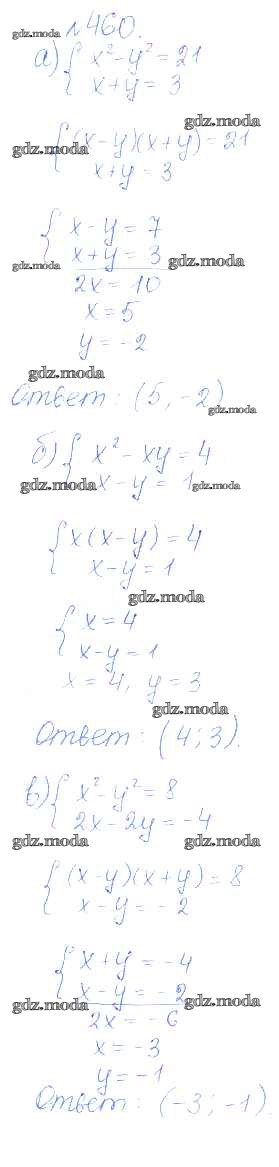 gdz.moda №460.
а) { x² - y² = 21
x + y = 3
gdz.moda
{ (x - y)(x + y) = 21
gdz.moda
x + y = 3
{ x - y = 7
x + y = 3
gdz.moda gdz.moda
2x = 10
x = 5
y = -2
gdz.moda
Ответ: (5, -2)
gdz.moda
б) { x² - xy = 4
x - y = 1
gdz.moda gdz.moda
{ x(x - y) = 4
x - y = 1
gdz.moda
{ x = 4
x - y = 1
x = 4, y = 3
gdz.moda
Ответ: (4; 3).
в) { x² - y² = 8
2x - 2y = -4
gdz.moda gdz.moda
{ (x - y)(x + y) = 8
gdz.moda gdz.moda
x - y = -2
{ x + y = -4
x - y = -2
gdz.moda gdz.moda
2x = -6
x = -3
y = -1
gdz.moda gdz.moda
Ответ: (-3; -1)